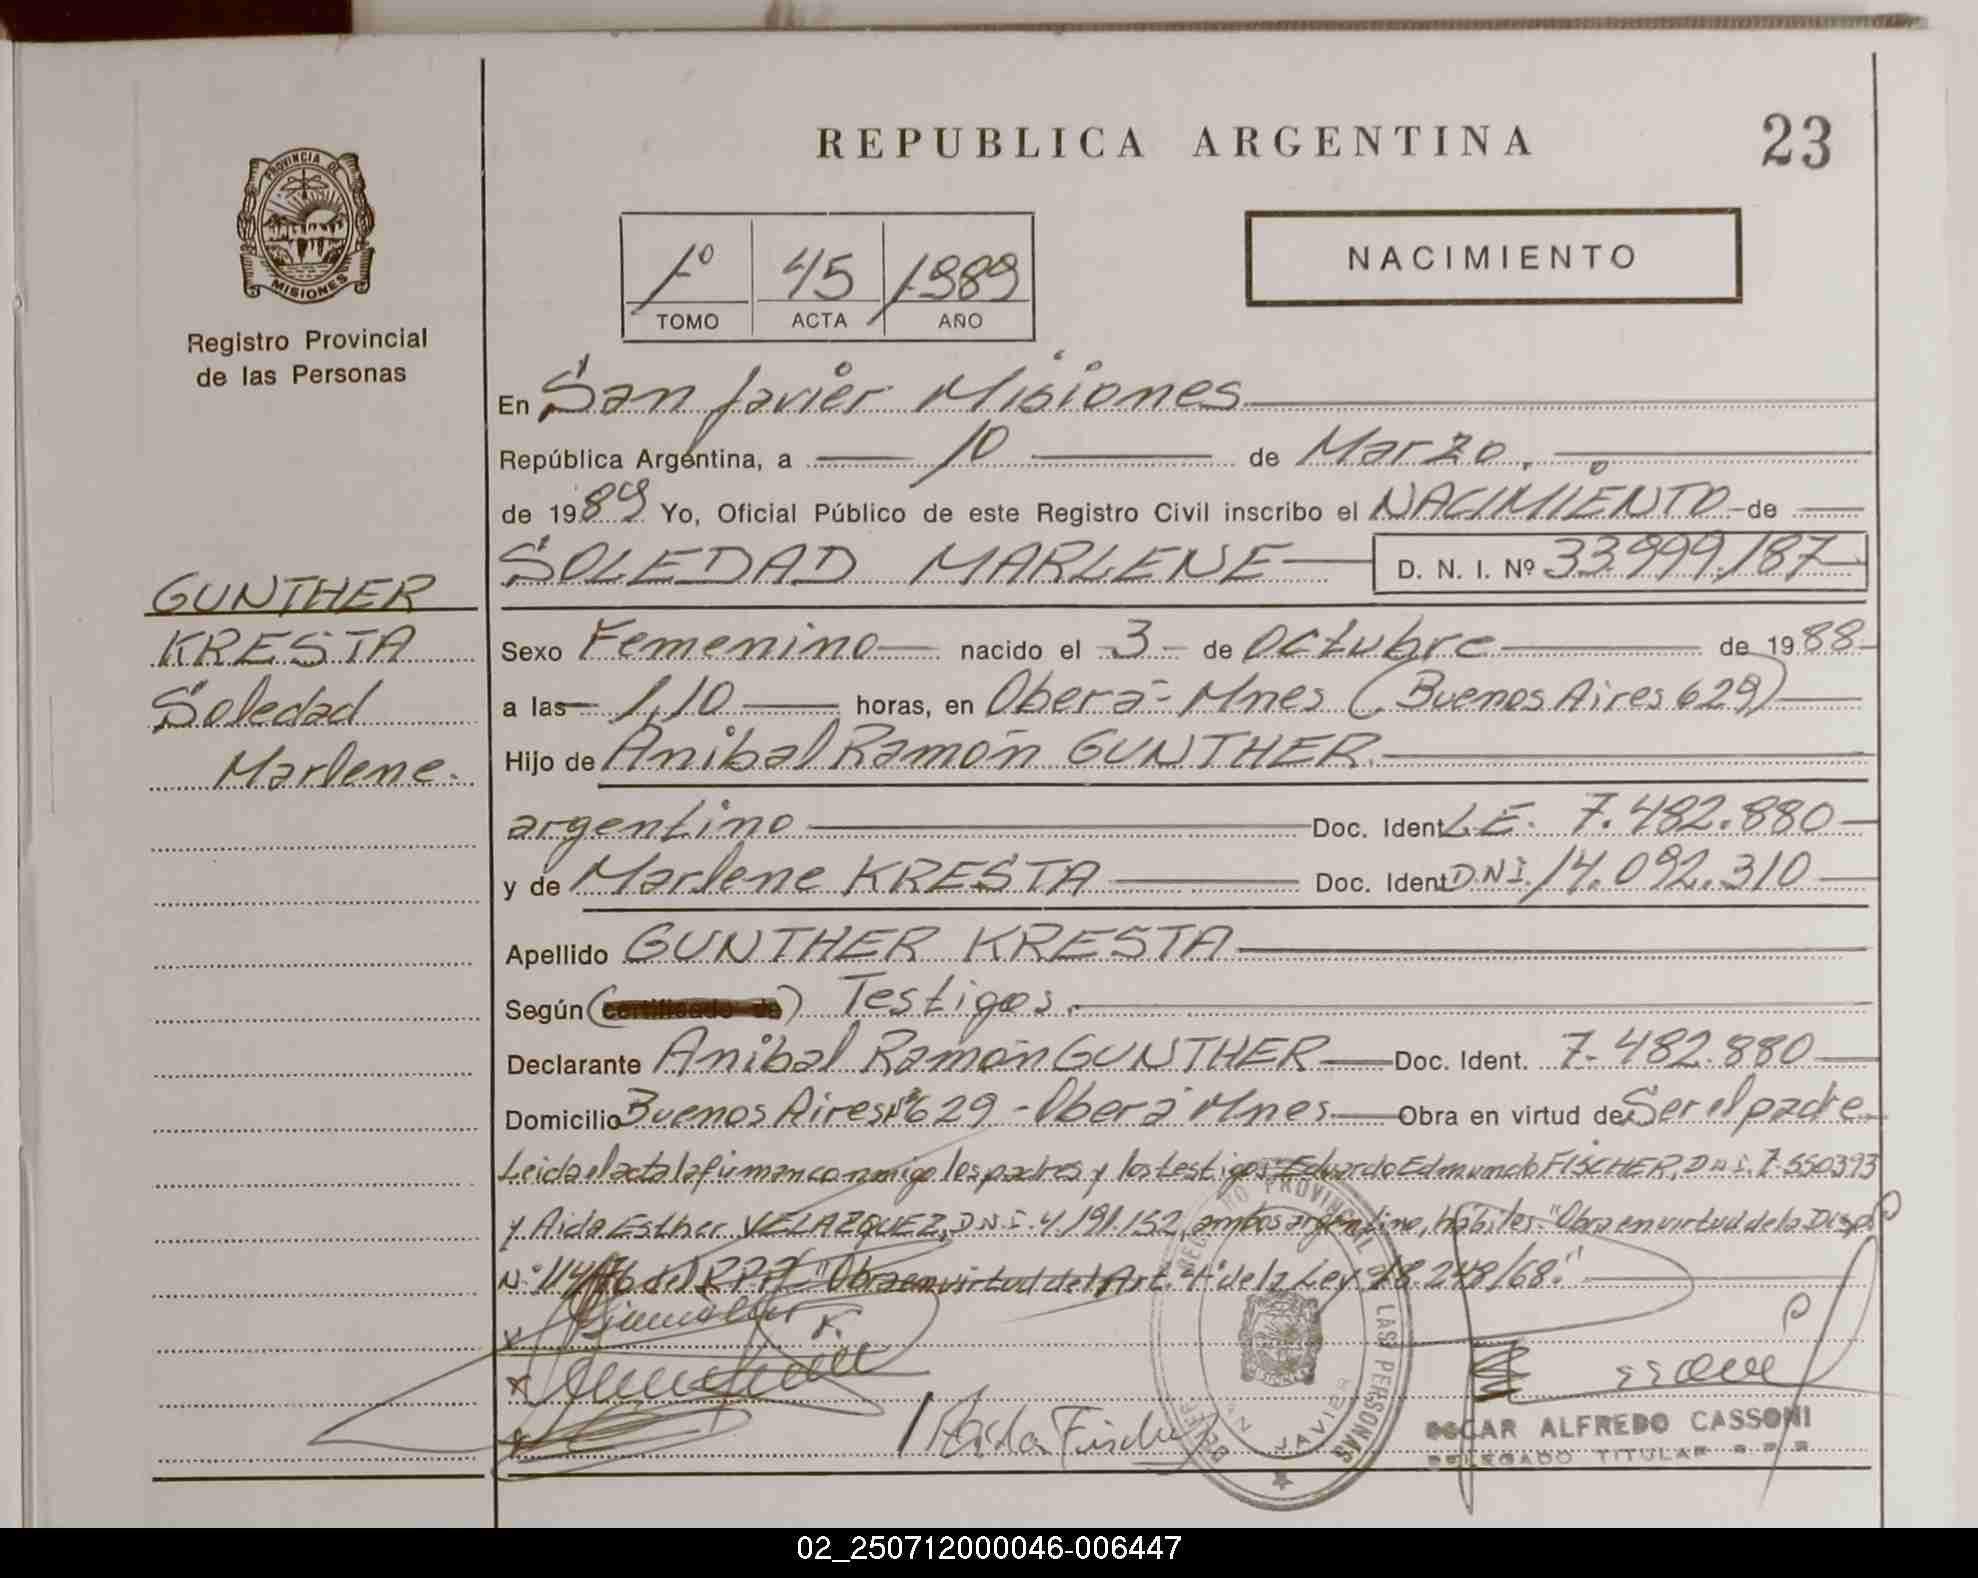 REPUBLICA ARGENTINA
23
PROVINCIA DE
MISIONES
Registro Provincial
de las Personas
1º 45 1989
TOMO ACTA AÑO
NACIMIENTO
En San Javier Misiones
República Argentina, a 10 de Marzo,
de 1989 Yo, Oficial Público de este Registro Civil inscribo el NACIMIENTO de
SOLEDAD MARLENE D. N. I. Nº 33.999.187
GUNTHER
KRESTA
Soledad
Marlene.
Sexo Femenino nacido el 3 de Octubre de 1988
a las 1,10 horas, en Oberá - Mnes (Buenos Aires 629)
Hijo de Anibal Ramón GUNTHER.
argentino Doc. Ident L.E. 7.482.880
y de Marlene KRESTA Doc. Ident D.N.I. 14.092.310
Apellido GUNTHER KRESTA
Según (certificado de) Testigos.
Declarante Anibal Ramón GUNTHER Doc. Ident. 7.482.880
Domicilio Buenos Aires Nº 629 - Oberá Mnes. Obra en virtud de Ser el padre
Leida el acta la firman conmigo los padres y los testigos Eduardo Edmundo FISCHER, D.N.I. 7.550.393
y Aida Esther VELAZQUEZ, D.N.I. 4.191.152, ambos argentino, hábiles. "Obra en virtud de la Disp.
Nº del R.P.P. "Obra en virtud del Art. 4º de la Ley 18.248/68."
Aida Fischer
REGISTRO PROVINCIAL DE LAS PERSONAS
SAN JAVIER
OSCAR ALFREDO CASSONI
DELEGADO TITULAR R P P
02_250712000046-006447